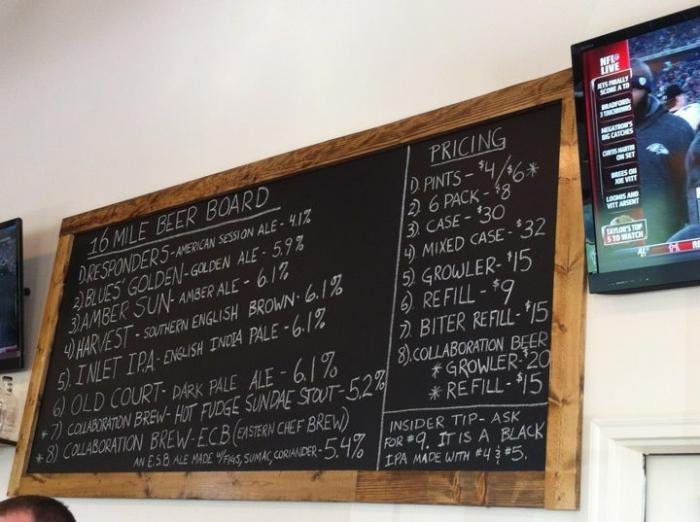 16 MILE BEER BOARD
1) RESPONDERS - AMERICAN SESSION ALE - 4.1%
2) BLUES' GOLDEN - GOLDEN ALE - 5.9%
3) AMBER SUN - AMBER ALE - 6.1%
4) HARVEST - SOUTHERN ENGLISH BROWN - 6.1%
5) INLET I.P.A. - ENGLISH INDIA PALE - 6.1%
6) OLD COURT - DARK PALE ALE - 6.1%
* 7) COLLABORATION BREW - HOT FUDGE SUNDAE STOUT - 5.2%
* 8) COLLABORATION BREW - E.C.B (EASTERN CHEF BREW)
AN E.S.B. ALE MADE W/FIGS, SUMAC, CORIANDER - 5.4%
PRICING
1) PINTS - $4/$6*
2) 6 PACK - $8
3) CASE - $30
4) MIXED CASE - $32
5) GROWLER - $15
6) REFILL - $9
7) BITER REFILL - $15
8) COLLABORATION BEER
* GROWLER - $20
* REFILL - $15
INSIDER TIP - ASK
FOR #9. IT IS A BLACK
IPA MADE WITH #4 & #5.
NFL
LIVE
JETS FINALLY
SCORE A TD
BRADFORD:
3 TOUCHDOWNS
MEGATRON'S
BIG CATCHES
CURTIS MARTIN
ON SET
BREES ON
JOE VITT
LOOMIS AND
VITT ABSENT
TAYLOR'S TOP
5 TO WATCH